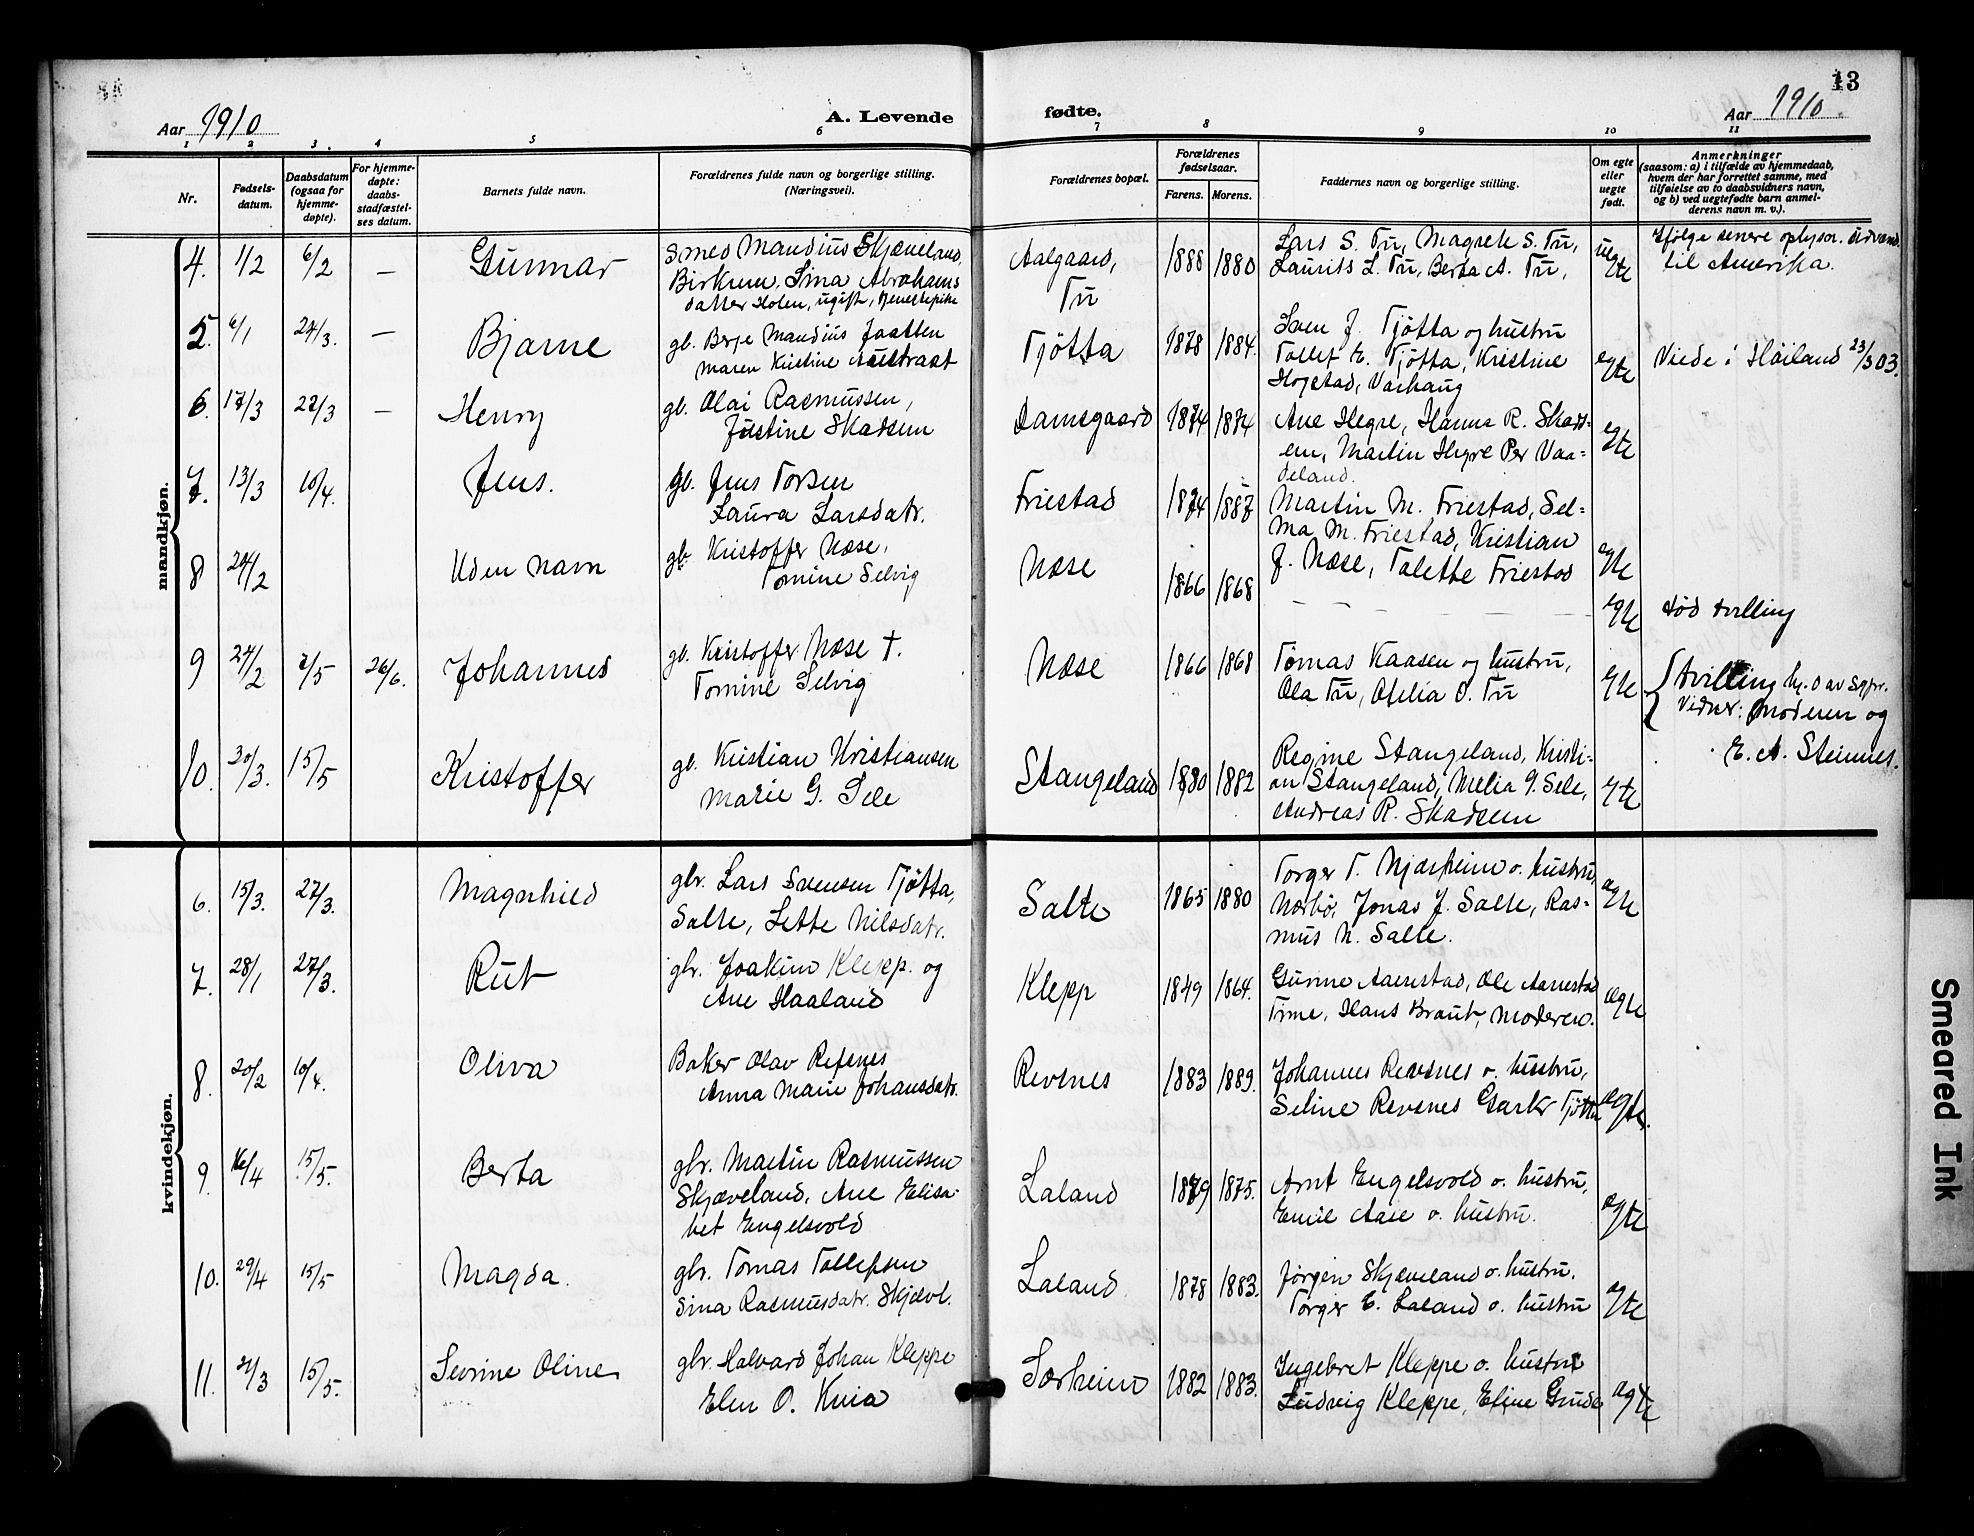 13
Aar 1910
A. Levende
fødte.
Aar 1910.
1 2 3. 4 5 6 7 8 9 10 11
Nr.
Fødsels-
datum.
Daabsdatum
(ogsaa for
hjemme-
døpte).
For hjemme-
døpte:
daabs-
stadfæstel-
ses datum.
Barnets fulde navn.
Forældrenes fulde navn og borgerlige stilling.
(Næringsvei).
Forældrenes bopæl.
Forældrenes
fødselsaar.
Farens. Morens.
Faddernes navn og borgerlige stilling.
Om egte
eller
uegte
født.
Anmerkninger
(saasom: a) i tilfælde av hjemmedaab,
hvem der har forrettet samme, med
tilføielse av to daabsvidners navn,
og b) ved uegtefødte barn anmel-
derens navn m. v.).
mandkjøn.
4. 1/2 6/2 — Gunnar
Smed Maudius Skjæveland,
Birkrem, Sina Abrahams
datter Holen, ugift, tjenestepike
Aalgaard,
Tu
1888 1880
Lars S. Tu, Magrete S. Tu,
Laurits L. Tu, Berta A. Tu,
uegte
Ifølge senere oplysn. udvand.
til Amerika.
5. 6/1 24/3. — Bjarne
gb. Berje Maudius Jaatten
Maren Kristine Austraat
Tjøtta 1878 1884.
Sven J. Tjøtta og hustru
Tollef E. Tjøtta, Kristine
Hogstad, Varhaug
egte
Viede i Høiland 23/3 03.
6. 17/3 27/3 — Henry
gb. Olai Rasmussen,
Justine Skadsem
Damsgaard 1874 1874
Ane Hegre, Hanna R. Skads-
em, Martin Hegre Per Vaa-
deland.
egte
7. 13/3 10/4. Jens.
gb. Jens Torsen
Laura Larsdatr.
Friestad 1874 1887
Martin M. Friestad, Sel-
ma M. Friestad, Kristian
J. Næse, Tolette Friestad
egte
8 24/2 Uden navn
gb. Kristoffer Næse,
Tomine Selvig
Næse 1866 1868
— — — — —
egte
død tvilling
9 24/2 7/5 26/6. Johannes
gb. Kristoffer Næse †.
Tomine Selvig
Næse 1866 1868
Tomas Kaasen og hustru,
Ola Tu, Otelia O. Tu
egte
tvilling hj. d av sgpr.
Vidner: Moderen og
E. A. Steinnes.
10. 30/3. 15/5 Kristoffer
gb. Kristian Kristiansen
Marie G. Sele
Stangeland 1880 1882
Regine Stangeland, Kristi-
an Stangeland, Melia G. Sele,
Andreas R. Skadsem
egte
kvindekjøn.
6. 15/3. 27/3. Magnhild
gbr. Lars Svensen Tjøtta,
Salte, Lette Nilsdatr.
Salte 1865 1880
Torger T. Njærheim o. hustru,
Nærbø, Jonas J. Salte, Ras-
mus N. Salte.
egte
7. 28/1 27/3. Rut
gbr. Joakim Klepp. og
Ane Haaland
Klepp 1849 1864.
Gurine Aarrestad, Ole Aarrestad
Time, Hans Braut, Moderen.
ægte
8. 20/2 10/4. Oliva
Baker Olav Refsnes
Anna Marie Johansdatr.
Revsnes 1883 1889.
Johannes Revsnes o. hustru,
Seline Revsnes Tjøtta
ægte.
9. 16/4 15/5. Berta
gbr. Martin Rasmussen
Skjæveland, Ane Elisa-
bet Engelsvold
Laland 1879 1875.
Arnt Engelsvold o. hustru,
Emil Aase o. hustru.
ægte
10. 29/4 15/5 Magda.
gbr. Tomas Tollefsen
Sina Rasmusdatr. Skjævl.
Laland 1878 1883.
Jørgen Skjæveland o. hustru.
Torger E. Laland o. hustru
ægte
11. 21/3 15/5. Sevrine Oline
gbr. Halvard Johan Kleppe
Elen O. Kvia
Særheim 1882 1883.
Ingebret Kleppe o. hustru
Ludvig Kleppe, Eline Grude
ægte
Smeared Ink